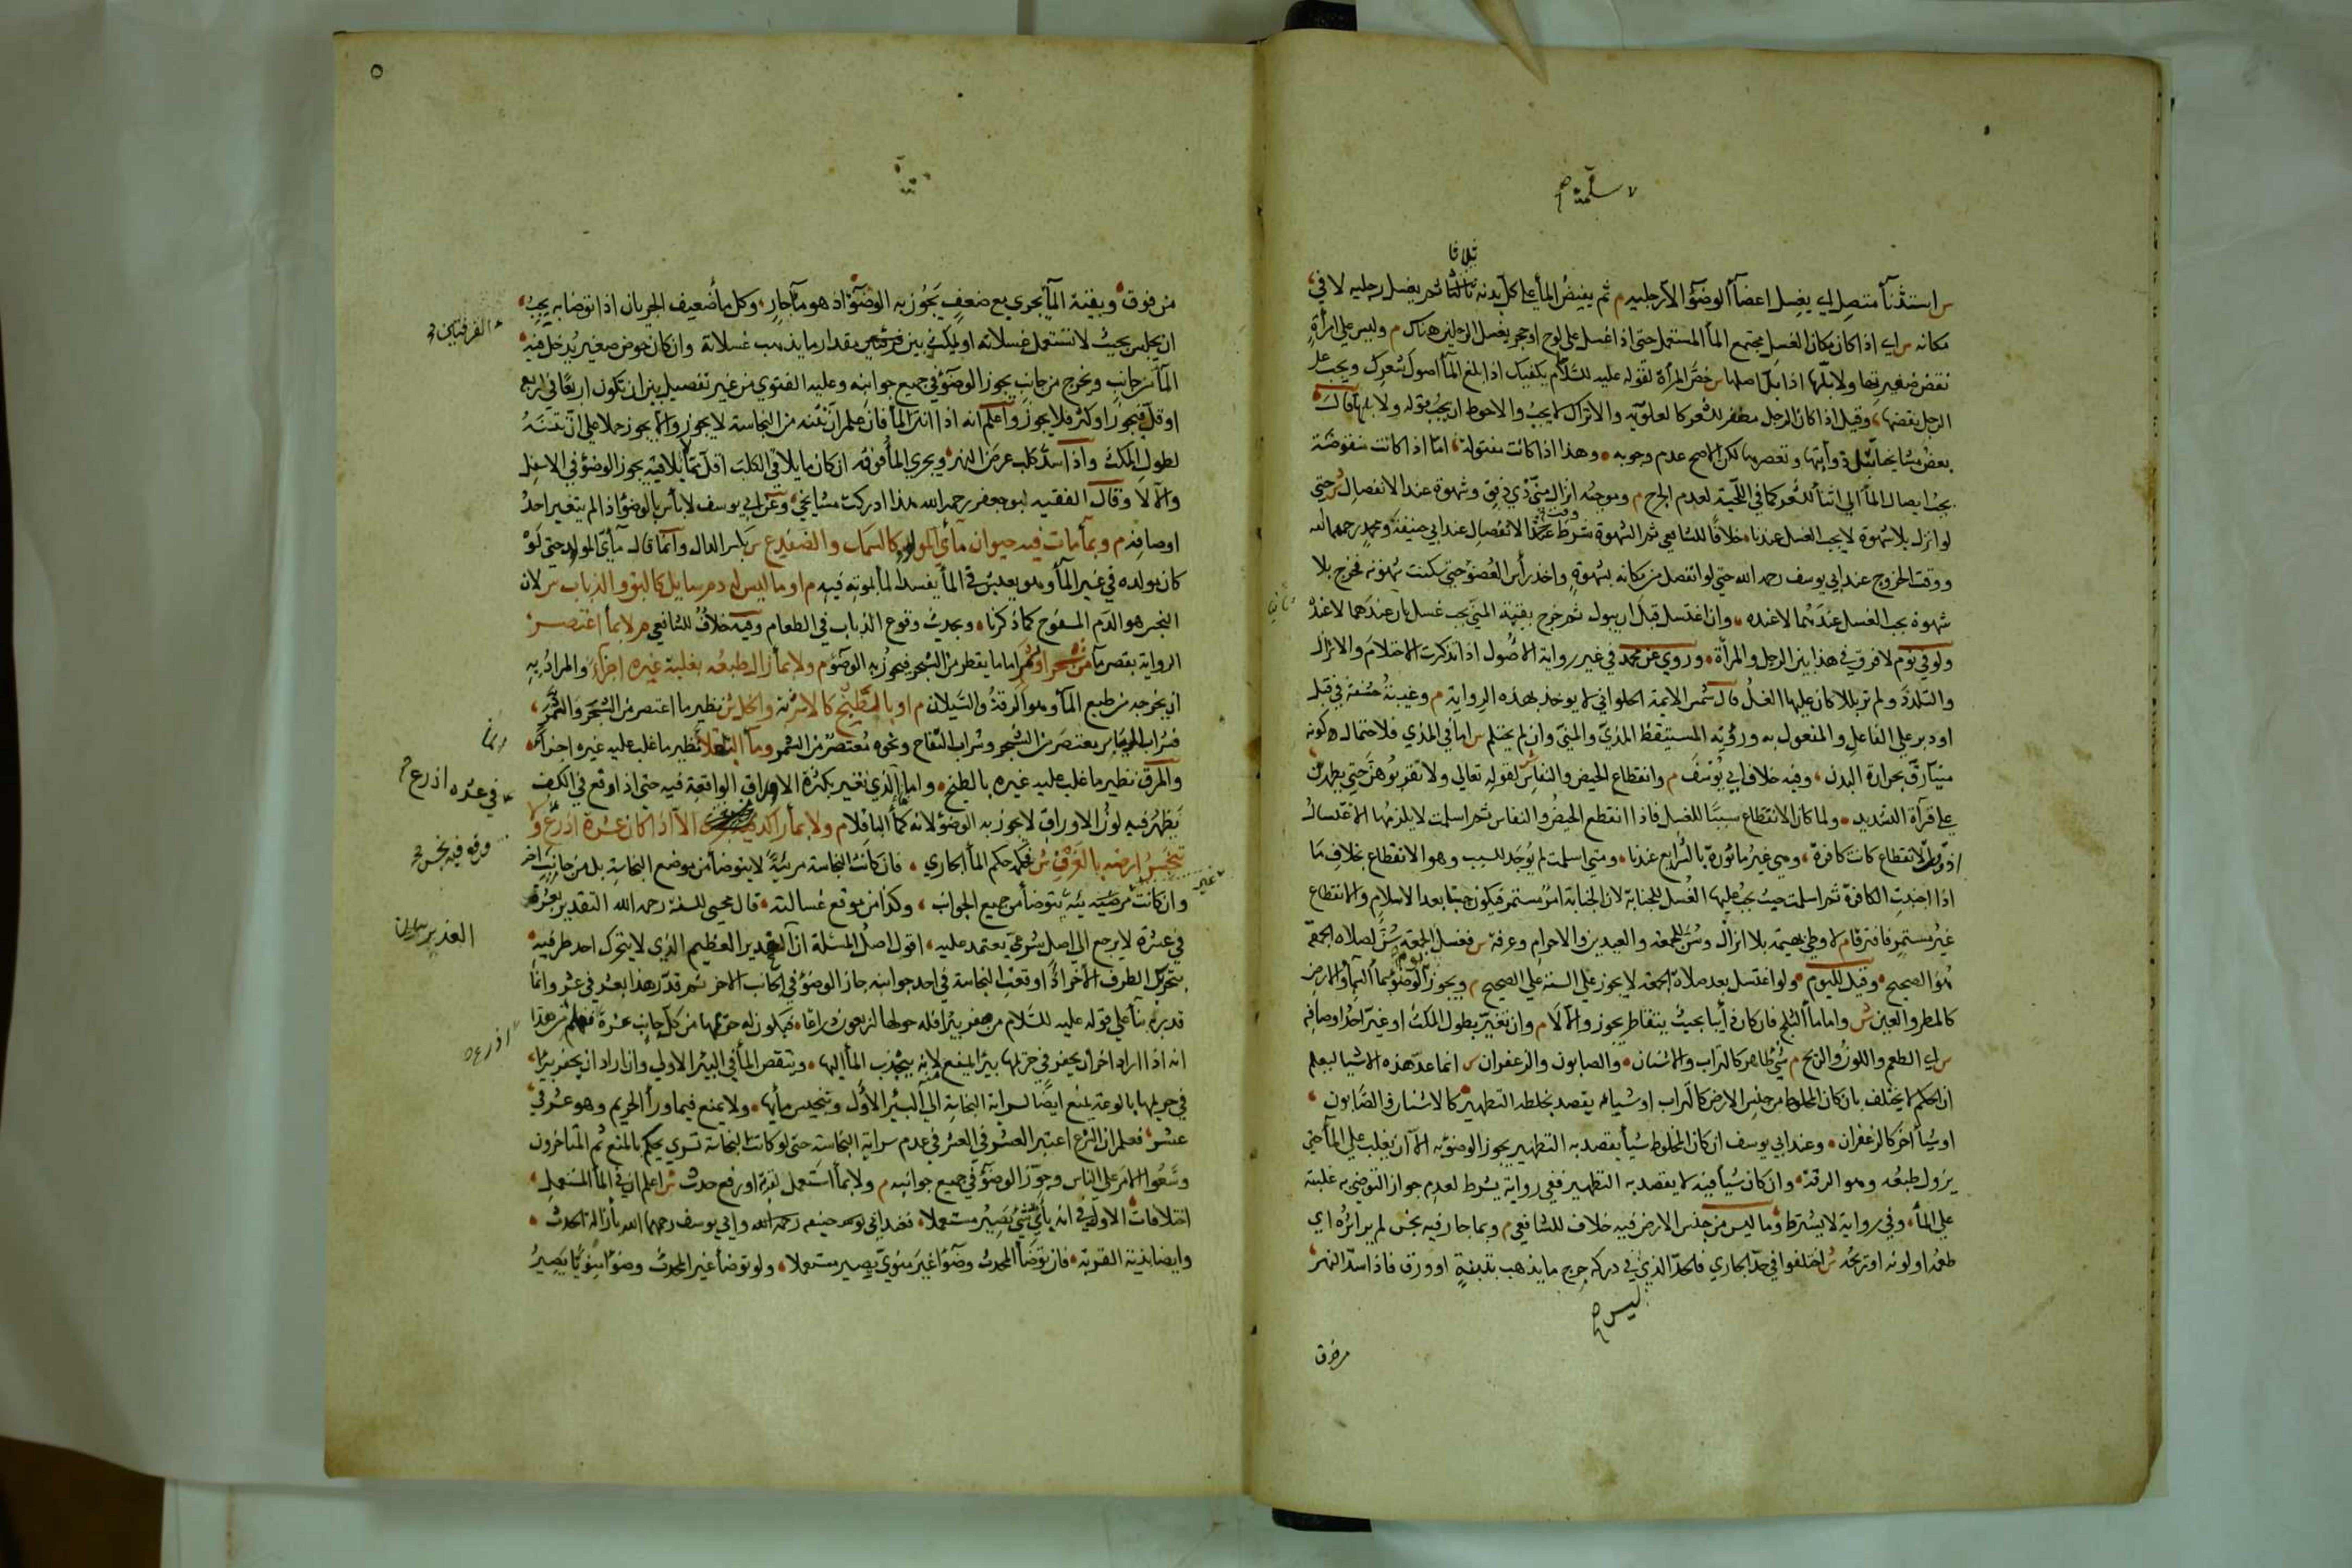 ثلاثا
س استثنآ متصل اي يغسل اعضآ الوضؤ الا رجليه م ثم يفيض المآ على كل بدنه ثلاثا ثم يغسل رجليه لا في
مكانه س اي اذا كان مكان الغسل مجتمع المآ المستعمل حتى اذا اغتسل على لوح او حجر يغسل الرجلين هناك م وليس على امرأة
نقض ضفيرتها ولا بلها اذا بل اصلها س خص المرأة لقوله عليه السلام يكفيك اذا بلغ المآ اصول شعرك ويجب على
الرجل نقضها وقيل اذا كان الرجل مضفر الشعر كالعلوية والاتراك لا يجب والاحوط ان يجب قوله ولا بلها قال
بعض مشايخنا تبل ذوآئبها وتعصرها لكن الاصح عدم وجوبه وهذا اذا كانت مفتولة اما اذا كانت منقوضة
يجب ايصال المآ الى اثنآ الشعر كما في اللحية لعدم الحرج م وموجبه انزال مني ذي دفق وشهوة عند الانفصال س حتى
لو انزل بلا شهوة لا يجب الغسل عندنا خلافا للشافعي ثم الشهوة شرط وقت الانفصال عند ابي حنيفة ومحمد رحمهما الله
ووقت الخروج عند ابي يوسف رحمه الله حتى لو انفصل من مكانه بشهوة واخذ رأس العضو حتى سكنت شهوته فخرج بلا
شهوة يجب الغسل عندهما لا عنده وان اغتسل قبل ان يبول ثم خرج بقية المني يجب غسل ثان عندهما لا عنده
ولو في نوم لا فرق في هذا بين الرجل والمرأة وروي عن محمد في غير رواية الاصول اذا تذكرت الاحتلام والانزال
والتلذذ ولم تر بللا كان عليها الغسل قال شمس الايمة الحلواني لا يوخذ بهذه الرواية م وغيبة حشفة في قبل
او دبر على الفاعل والمفعول به ورؤية المستيقظ المذي والمني وان لم يحتلم س اما في المذي فلاحتمال كونه
منيا رق بحرارة البدن وفيه خلاف ابي يوسف م وانقطاع الحيض والنفاس س لقوله تعالى ولا تقربوهن حتى يطهرن
على قرآة التشديد ولما كان الانقطاع سببا للغسل فاذا انقطع الحيض والنفاس ثم اسلمت لا يلزمها الاغتسال
اذ وقت الانقطاع كانت كافرة وهي غير مامورة بالشرايع عندنا ومتى اسلمت لم يوجد السبب وهو الانقطاع بخلاف ما
اذا اجنبت الكافرة ثم اسلمت حيث يجب عليها الغسل للجنابة لان الجنابة امر مستمر فيكون جنبا بعد الاسلام والانقطاع
غير مستمر فافترقا م لا وطئ بهيمة بلا انزال وسن للجمعة والعيدين والاحرام وعرفة س فغسل الجمعة سن لصلاة الجمعة
هو الصحيح وقيل لليوم ولو اغتسل بعد صلاة الجمعة لا يجوز على السنة على الصحيح م ويجوز الوضؤ بمآ السمآ والارض
كالمطر والعين س واما مآ الثلج فان كان ذآئبا بحيث يتقاطر يجوز والا لا م وان تغير بطول المكث او غير احد اوصافه
س اي الطعم واللون والريح م شئ طاهر كالتراب والاشنان والصابون والزعفران س انما عد هذه الاشيا ليعلم
ان الحكم لا يختلف بان كان المخلوط من جنس الارض كالتراب او شيا يقصد بخلطه التطهير كالاشنان والصابون
او شيأ آخر كالزعفران وعند ابي يوسف ان كان المخلوط شيأ يقصد به التطهير يجوز الوضؤ به الا ان يغلب على المآ حتى
يزول طبعه وهو الرقة وان كان شيأ لا يقصد به التطهير ففي رواية يشرط لعدم جواز التوضي به غلبته
على المآ وفي رواية لا يشترط وما ليس من جنس الارض فيه خلاف للشافعي م وبما جار فيه نجس لم ير اثره اي
طعمه او لونه او ريحه س اختلفوا في حد الجاري فالحد الذي ليس في دركه حرج ما يذهب بتبنة او ورق فاذا سد النهر
ليس
من فوق
من فوق وبقية المآ يجري مع ضعف يجوز به الوضؤ اذ هو مآ جار وكل مآ ضعيف الجريان اذا توضا به يجب
ان يجلس بحيث لا تستعمل غسلاته او يمكث بين مقدار ما يذهب غسلاته وان كان حوض صغير يدخل فيه
المآ من جانب ويخرج من جانب يجوز الوضؤ في جميع جوانبه وعليه الفتوى من غير تفصيل بين ان تكون اربعا في اربع
او اقل فيجوز او اكثر فلا يجوز واعلم انه اذا انتن المآ فان علم ان نتنه من النجاسة لا يجوز والا يجوز حملا على ان نتنه
لطول المكث واذا سد كلب عرض النهر ويجري المآ فوقه ان كان ما يلاقي الكلب اقل مما يلاقيه يجوز الوضؤ في الاسفل
والا لا وقال الفقيه ابو جعفر رحمه الله هذا ادركت مشايخي وعن ابي يوسف لا بأس بالوضؤ اذا لم يتغير احد
اوصافه م وبمآ مات فيه حيوان مآئي المولد كالسمك والضفدع س بكسر الدال وانما قال مآئي المولد حتى لو
كان مولده في غير المآ وهو يعيش في المآ يفسد المآ بموته فيه م او ما ليس له دم سايل كالبق والذباب س لان
النجس هو الدم المسفوح كما ذكرنا وبحديث وقوع الذباب في الطعام وفيه خلاف للشافعي م لا بمآ اعتصر س
الرواية بقصر ما من شجر او ثمر اما ما يقطر من الشجر فيجوز به الوضؤ م ولا بمآ زال طبعه بغلبة غيره اجزآء والمراد به
ان يخرجه من طبع المآ وهو الرقة والسيلان م او بالطبخ كالاشربة والخل س نظير ما اعتصر من الشجر والثمر
فشراب الريباس يعتصر من الشجر وشراب التفاح ونحوه معتصر من الثمر ومآ الباقلا نظير ما غلب عليه غيره اجزآ
والمرق نظير ما غلب عليه غيره بالطبخ واما المآ الذي تغير بكثرة الاوراق الواقعة فيه حتى اذا وقع في الكف
يظهر فيه لون الاوراق لا يجوز به الوضؤ لانه كمآ الباقلا م ولا بمآ راكد الا اذا كان عشرة اذرع ولا
تنجس ارضه بالغرف س فحكمه حكم المآ الجاري فان كانت النجاسة مرئية لا يتوضأ من موضع النجاسة بل من جانب اخر
وان كانت غير مرئية يتوضأ من جميع الجوانب وكذا من موقع غسالته قال محيي السنة رحمه الله التقدير بعشرة
في عشرة لا يرجع الى اصل شرعي يعتمد عليه اقول اصل المسئلة ان الغدير العظيم الذي لا يتحرك احد طرفيه
بتحريك الطرف الاخر اذا وقعت النجاسة في احد جوانبه جاز الوضؤ في الجانب الاخر ثم قدر هذا بعشر في عشر وانما
قدر به بنآ على قوله عليه السلام من حفر بئرا فله حولها اربعون ذراعا فيكون له حريمها من كل جانب عشرة ففهم من هذا
انه اذا اراد اخر ان يحفر في حريمها بئرا يمنع لانه ينجذب المآ اليها وينقص المآ في البئر الاولى وان اراد ان يحفر بئرا
في حريمها بالوعة يمنع ايضا لسراية النجاسة الى البئر الاول وتنجيس مآئها ولا يمنع فيما ورآ الحريم وهو عشر في
عشر فعلم ان الشرع اعتبر العشر في العشر في عدم سراية النجاسة حتى لو كانت النجاسة تسري يحكم بالمنع ثم المتاخرون
وسعوا الامر على الناس وجوزوا الوضؤ في جميع جوانبه م ولا بمآ استعمل لقربة او رفع حدث س اعلم ان في المآ المستعمل
اختلافات الاول في انه بأي شئ يصير مستعملا فعند ابي حنيفة رحمه الله وابي يوسف رحمهما الله بازالة الحدث
وايضا بنية القربة فان توضأ المحدث وضوا غير منوي يصير مستعملا ولو توضأ غير المحدث وضوا منويا يصير
في عشرة اذرع
اذرع